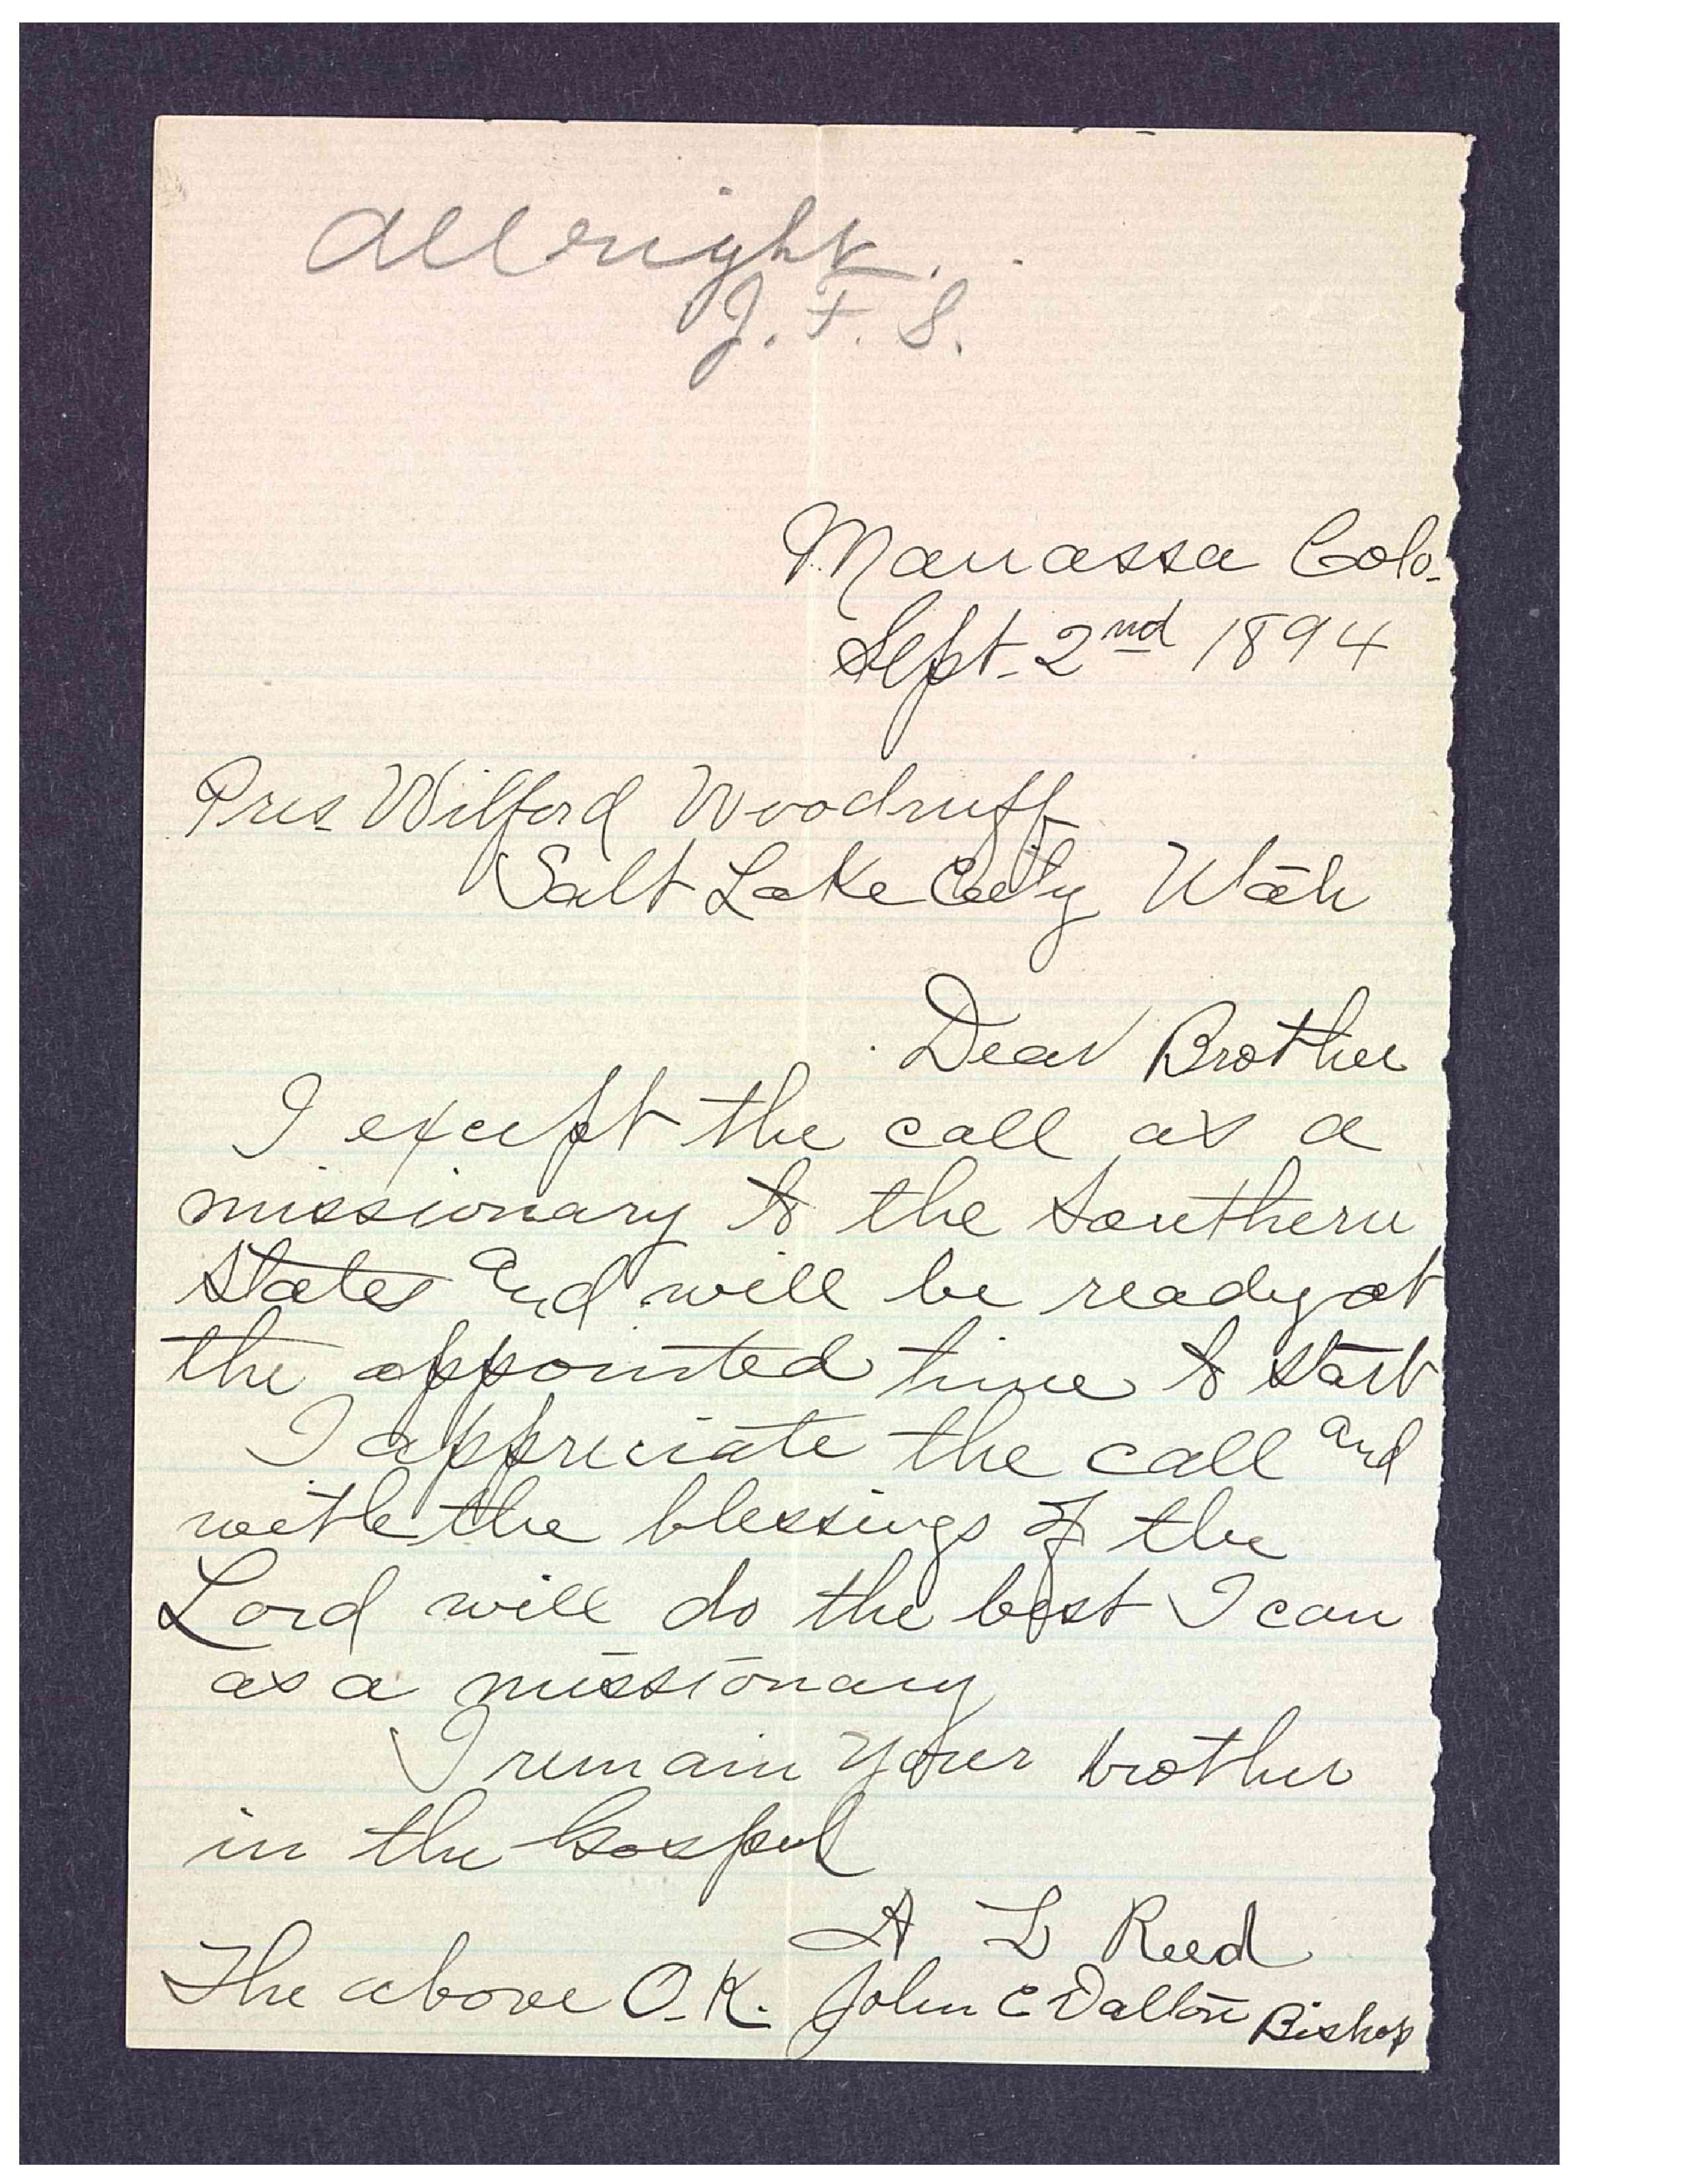 All right.
J. F. S.
Manassa Colo.
Sept. 2nd 1894
Pres Wilford Woodruff
Salt Lake City Utah
Dear Brother
I except the call as a
missionary to the Southern
States and will be ready at
the appointed time to start
I appreciate the call and
with the blessings of the
Lord will do the best I can
as a missionary
I remain your brother
in the Gospel
A L Reed
The above O.K. John C Dalton Bishop